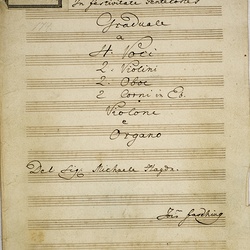 In festivitate Pentecostes
Graduale
a
4. Voci
2. Violini
2. Oboe
2 Corni in Eb.
Violone
e
Organo
Del Sig: Michaele Haydn.